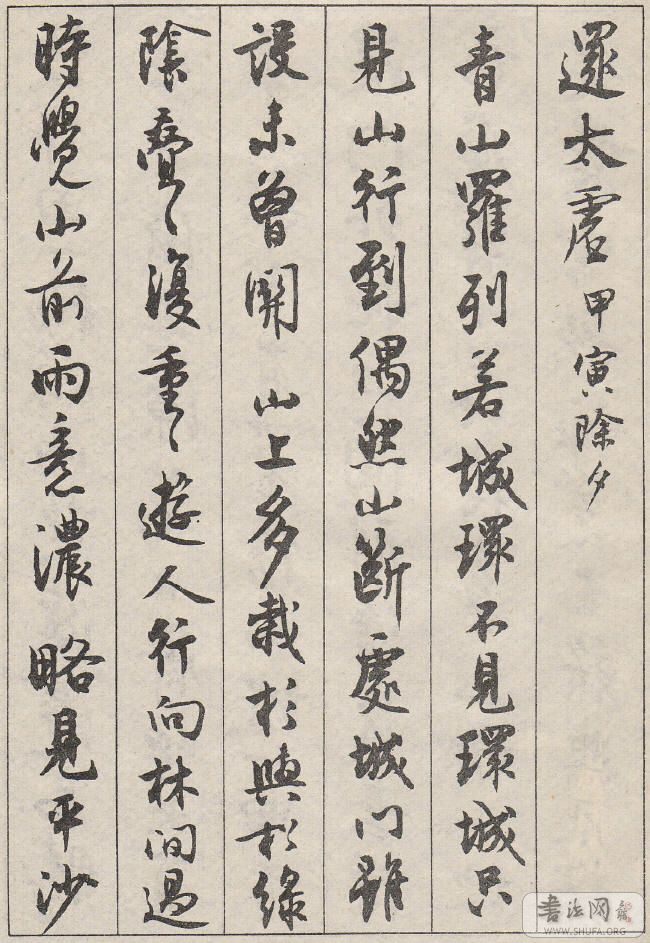 還太虛 甲寅除夕
青山羅列若城環不見環城只
見山行到偶然山斷處城門雖
設未曾關 山上多栽杉與松綠
陰疊〻復重〻遊人行向林間過
時覺山前雨意濃 略見平沙
書法网
WWW.SHUFA.ORG